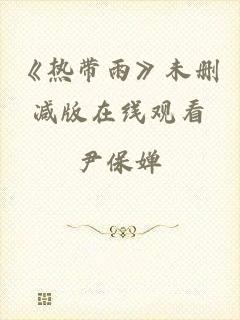 《热带雨》未删
减版在线观看
尹保婵